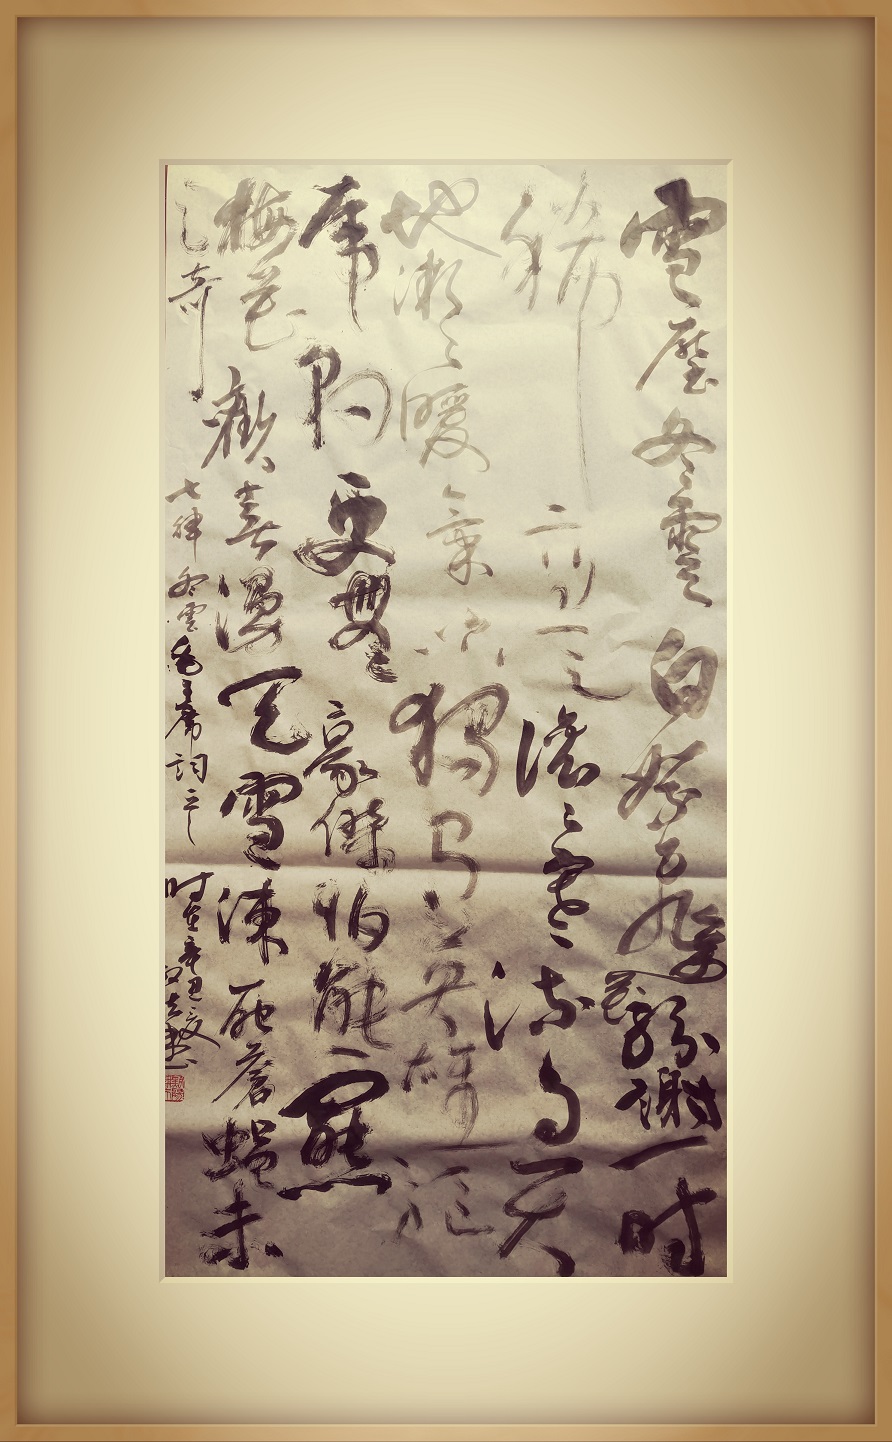 雪壓冬雲白絮飛萬花紛謝一時
稀滾々寒流急大
地微々暖氣吹獨有英雄驅
虎豹更無豪傑怕熊羆
梅花歡喜漫天雪凍死蒼蠅未
足奇 七律 冬雲 毛主席詞 時在辛丑夏